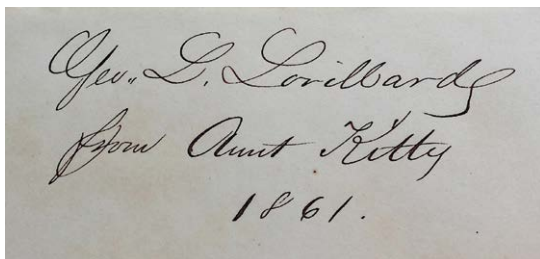 Geo. L. Lorillard
from Aunt Kitty
1861.